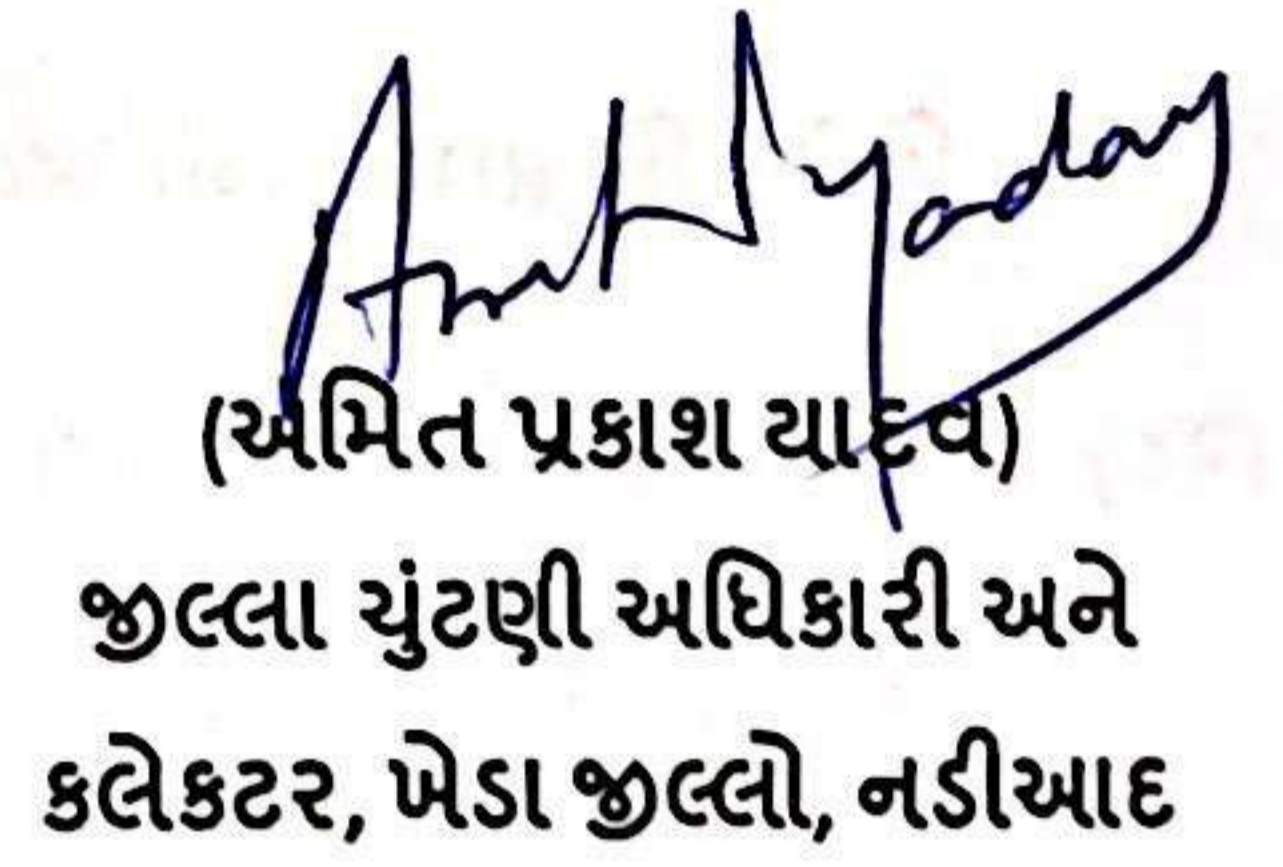 Amit Yadav
(અમિત પ્રકાશ યાદવ)
જીલ્લા ચુંટણી અધિકારી અને
કલેકટર, ખેડા જીલ્લો, નડીઆદ